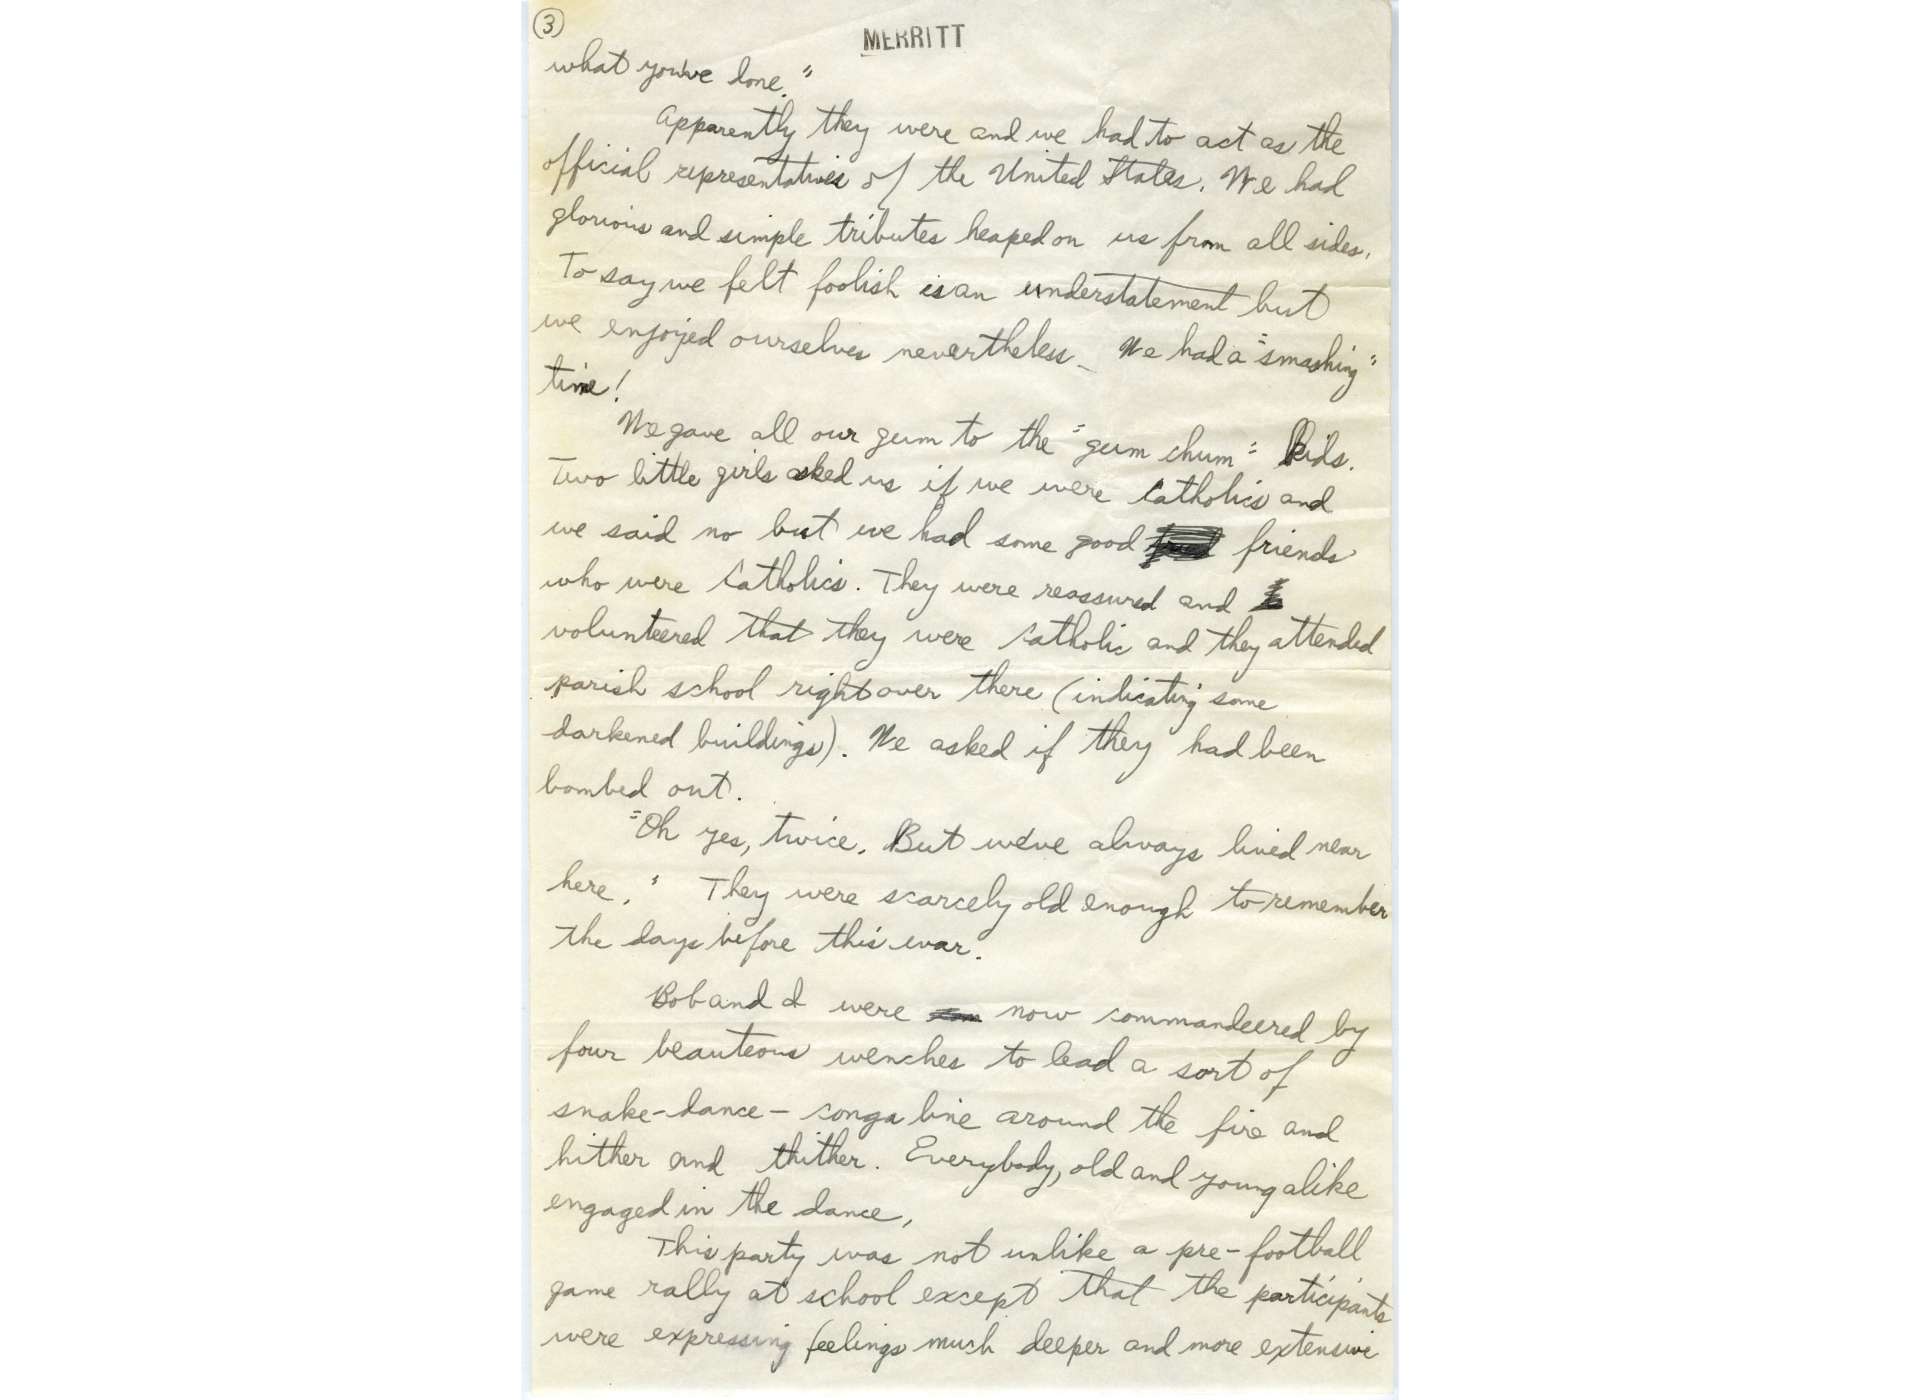 3
MERRITT
what you've done."
Apparently they were and we had to act as the
official representatives of the United States. We had
glorious and simple tributes heaped on us from all sides.
To say we felt foolish is an understatement but
we enjoyed ourselves nevertheless - We had a "smashing"
time!
We gave all our gum to the "gum chum" kids.
Two little girls asked us if we were Catholics and
we said no but we had some good friends
who were Catholics. They were reassured and
volunteered that they were Catholic and they attended
parish school right over there (indicating some
darkened buildings). We asked if they had been
bombed out.
"Oh yes, twice. But we've always lived near
here." They were scarcely old enough to remember
the days before this war.
Bob and I were now commandeered by
four beauteous wenches to lead a sort of
snake-dance - conga line around the fire and
hither and thither. Everybody, old and young alike
engaged in the dance,
This party was not unlike a pre-football
game rally at school except that the participants
were expressing feelings much deeper and more extensive